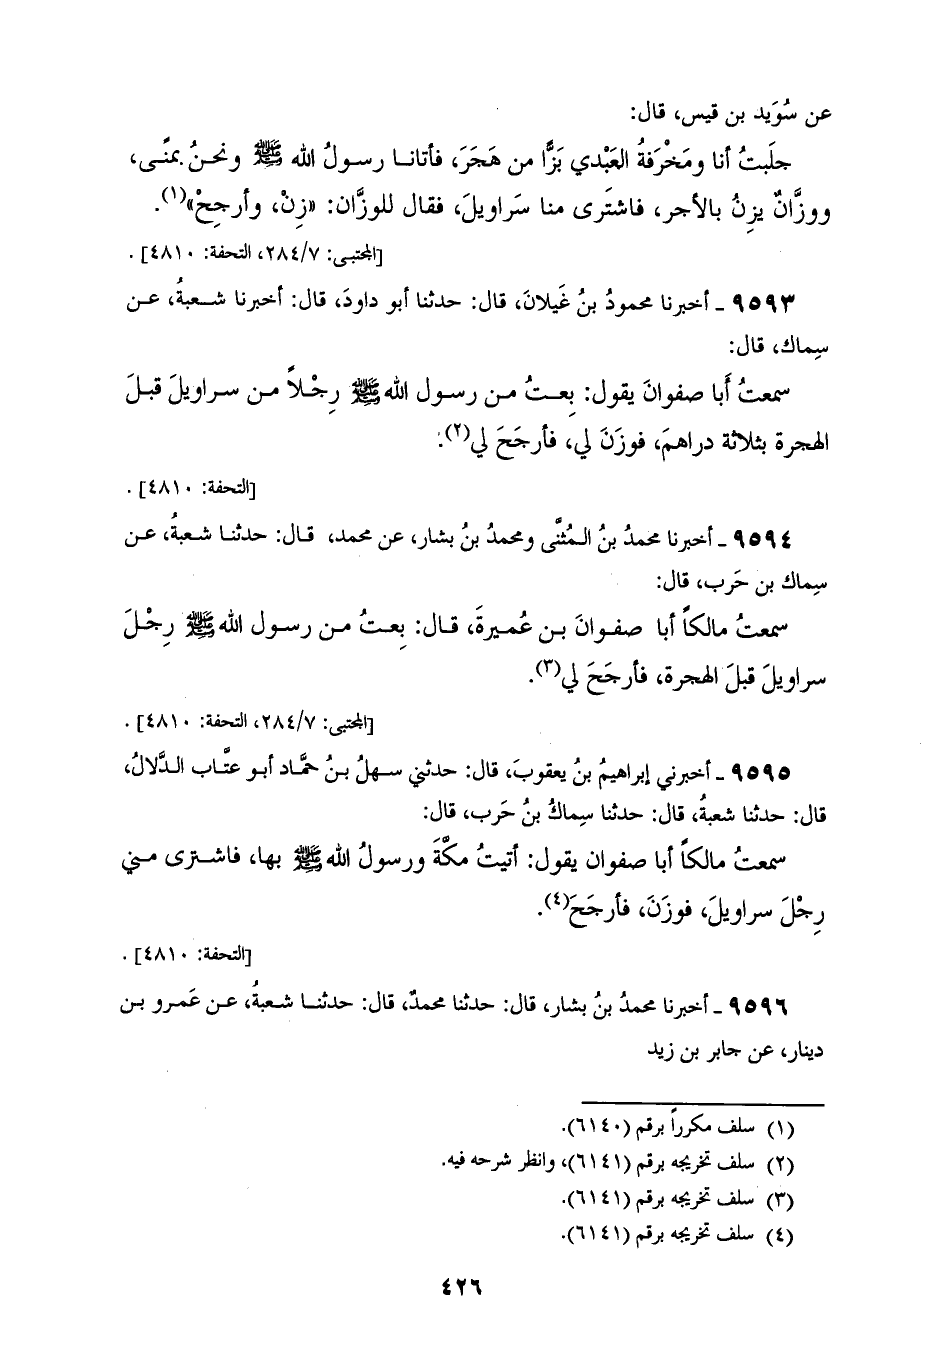 عن سُوَيد بن قيس، قال:
جلَبتُ أنا ومَخْرَفةُ العَبْدي بَزًّا من هَجَرَ، فأتانا رسولُ الله ﷺ ونحنُ بمنًى،
ووزَّانٌ يزِنُ بالأجر، فاشتَرى منا سَراويلَ، فقال للوزَّان: «زِنْ، وأرجِحْ»(١).
[المجتبى: ٢٨٤/٧، التحفة: ٤٨١٠] .
٩٥٩٣ ـ أخبرنا محمودُ بنُ غَيلانَ، قال: حدثنا أبو داودَ، قال: أخبرنا شعبةُ، عن
سِماك، قال:
سمعتُ أَبا صفوانَ يقول: بِعتُ من رسول الله ﷺ رِجْلاً من سراويلَ قبلَ
الهجرة بثلاثة دراهمَ، فوزَنَ لي، فأرجَحَ لي(٢).
[التحفة: ٤٨١٠] .
٩٥٩٤ ـ أخبرنا محمدُ بنُ المُثنَّى ومحمدُ بنُ بشار، عن محمد، قال: حدثنا شعبةُ، عن
سِماك بن حَرب، قال:
سمعتُ مالكاً أبا صفوانَ بن عُميرةَ، قال: بِعتُ من رسول الله ﷺ رِجْلَ
سراويلَ قبلَ الهجرة، فأرجَحَ لي(٣).
[المجتبى: ٢٨٤/٧، التحفة: ٤٨١٠] .
٩٥٩٥ ـ أخبرني إبراهيمُ بنُ يعقوبَ، قال: حدثني سهلُ بنُ حمَّاد أبو عتَّاب الدَّلالُ،
قال: حدثنا شعبةُ، قال: حدثنا سِماكُ بنُ حَرب، قال:
سمعتُ مالكاً أبا صفوان يقول: أتيتُ مكَّةَ ورسولُ الله ﷺ بها، فاشترى مني
رِجْلَ سراويلَ، فوزَنَ، فأرجَحَ(٤).
[التحفة: ٤٨١٠] .
٩٥٩٦ ـ أخبرنا محمدُ بنُ بشار، قال: حدثنا محمدٌ، قال: حدثنا شعبةُ، عن عَمرو بن
دينار، عن جابر بن زيد
(١) سلف مكرراً برقم (٦١٤٠).
(٢) سلف تخريجه برقم (٦١٤١)، وانظر شرحه فيه.
(٣) سلف تخريجه برقم (٦١٤١).
(٤) سلف تخريجه برقم (٦١٤١).
٤٢٦